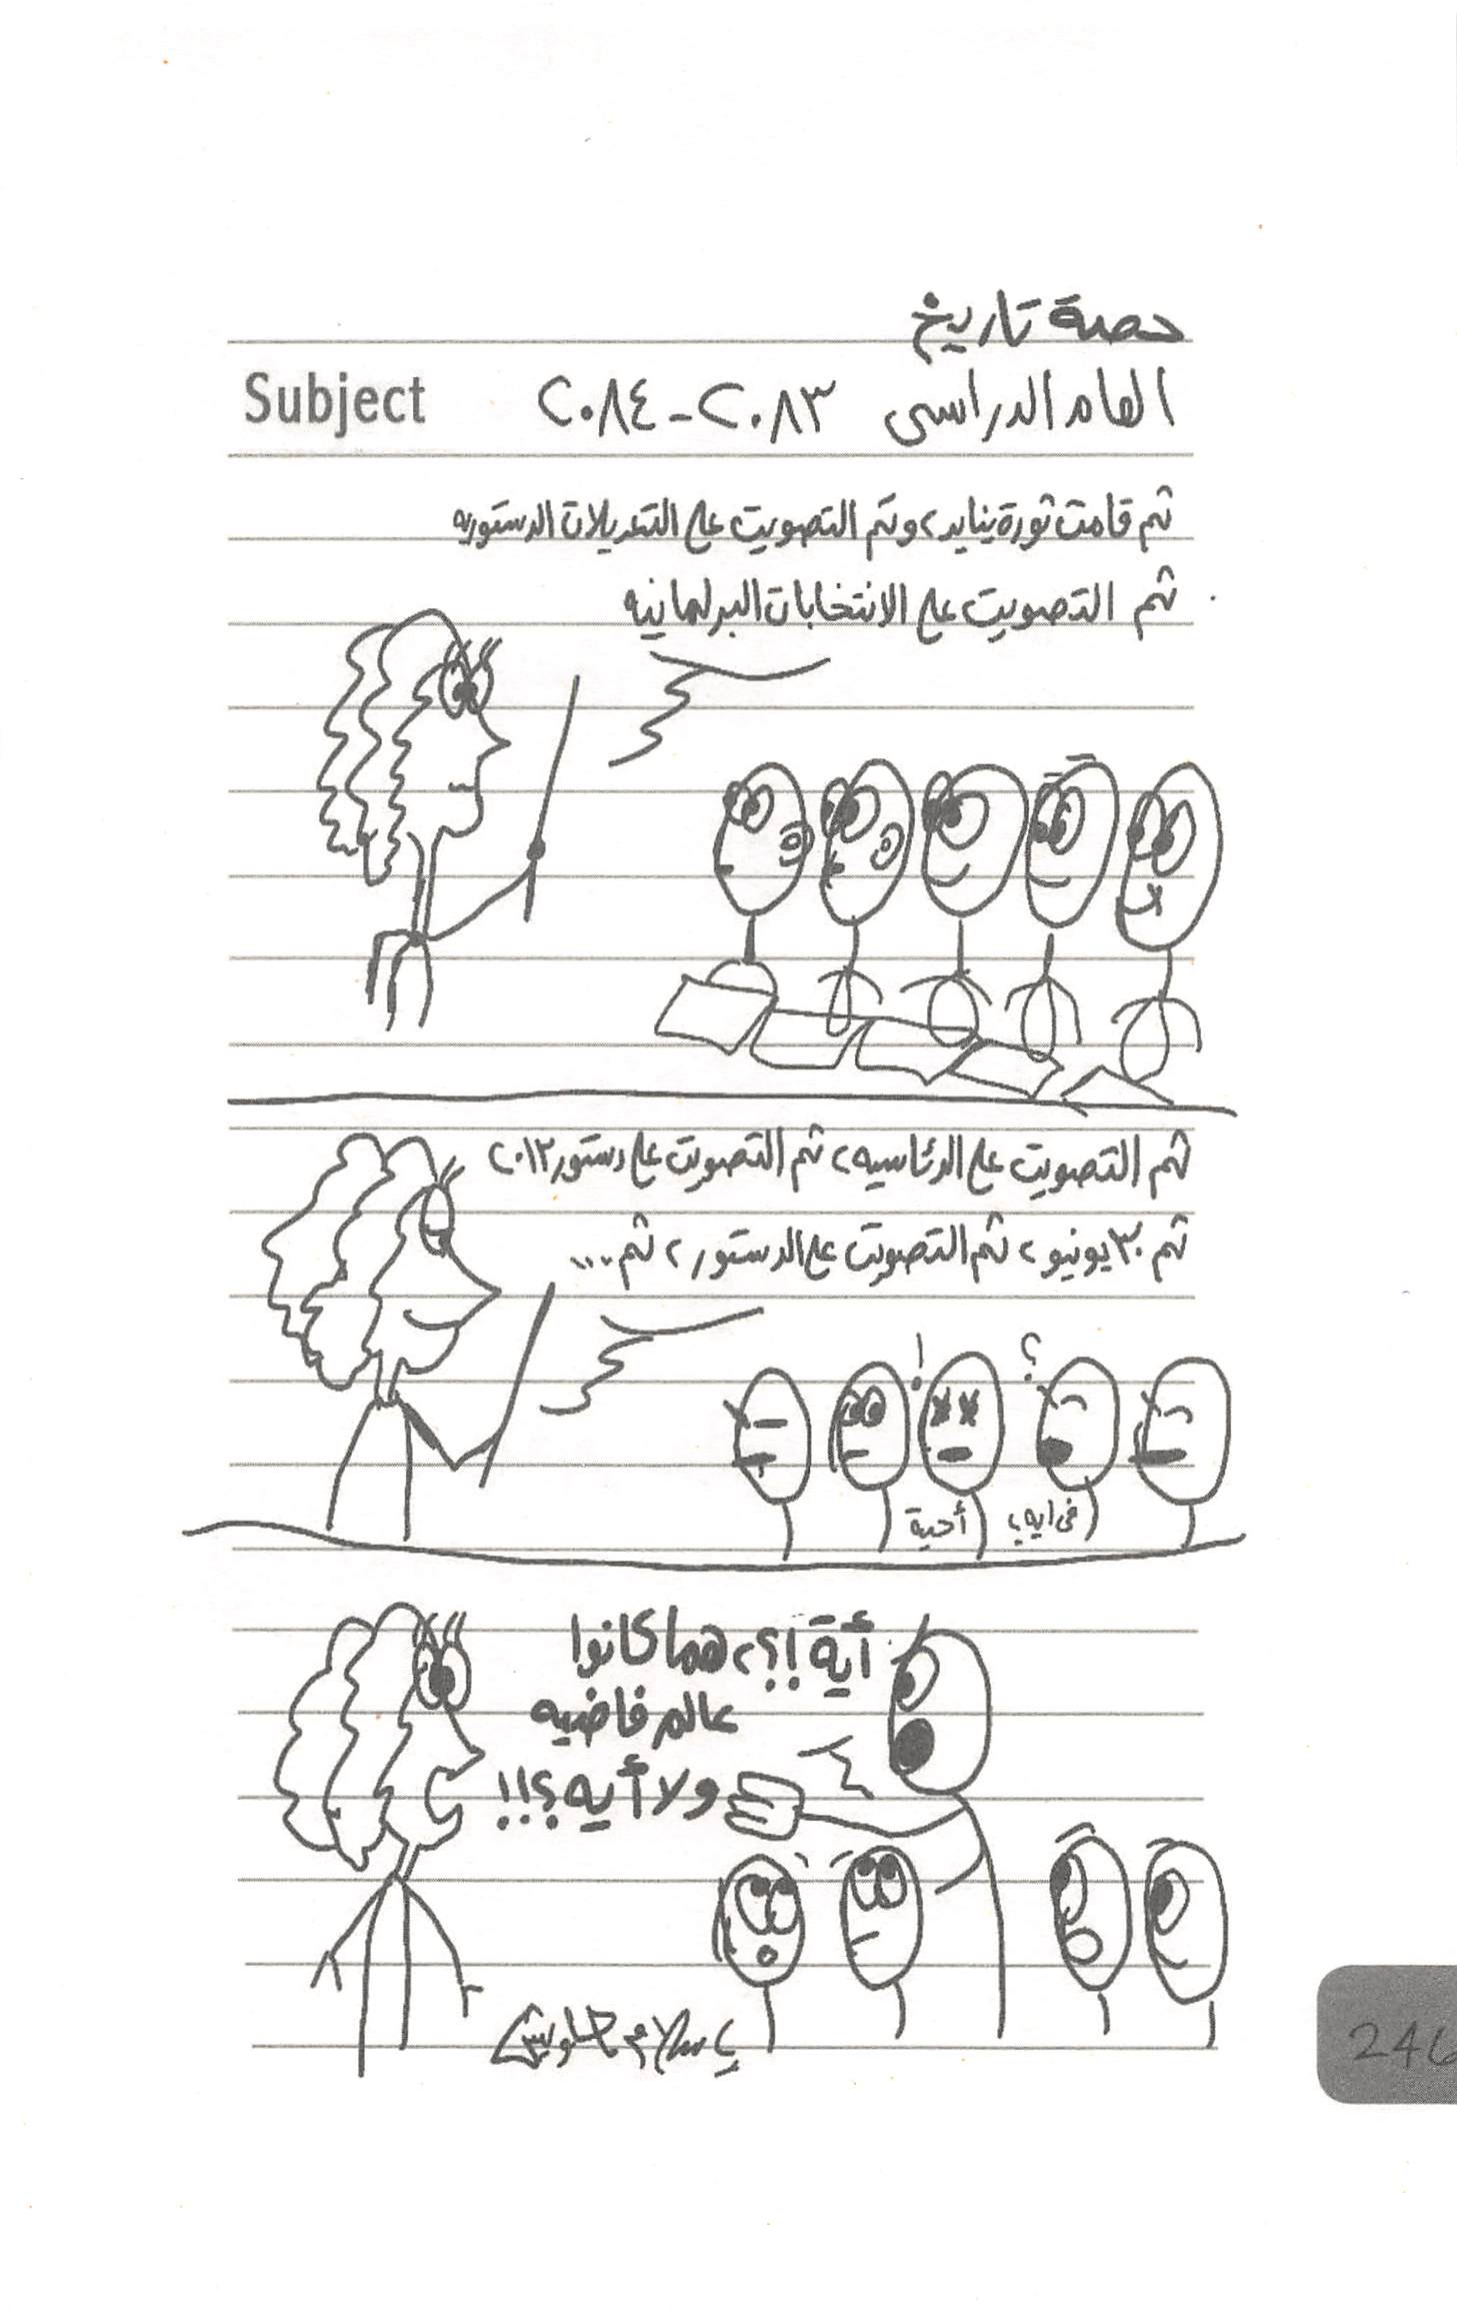 حصة تاريخ
Subject
العام الدراسى ٢٠٨٣ - ٢٠٨٤
ثم قامت ثورة يناير، وتم التصويت على التعديلات الدستوريه
ثم التصويت على الانتخابات البرلمانيه
ثم التصويت على الرئاسيه، ثم التصويت على دستور ٢٠١٢
ثم ٣٠ يونيو، ثم التصويت على الدستور، ثم ....
!
؟
فى ايه؟
أحية
أية!؟، هما كانوا
عالم فاضيه
ولا أيه؟!!
246